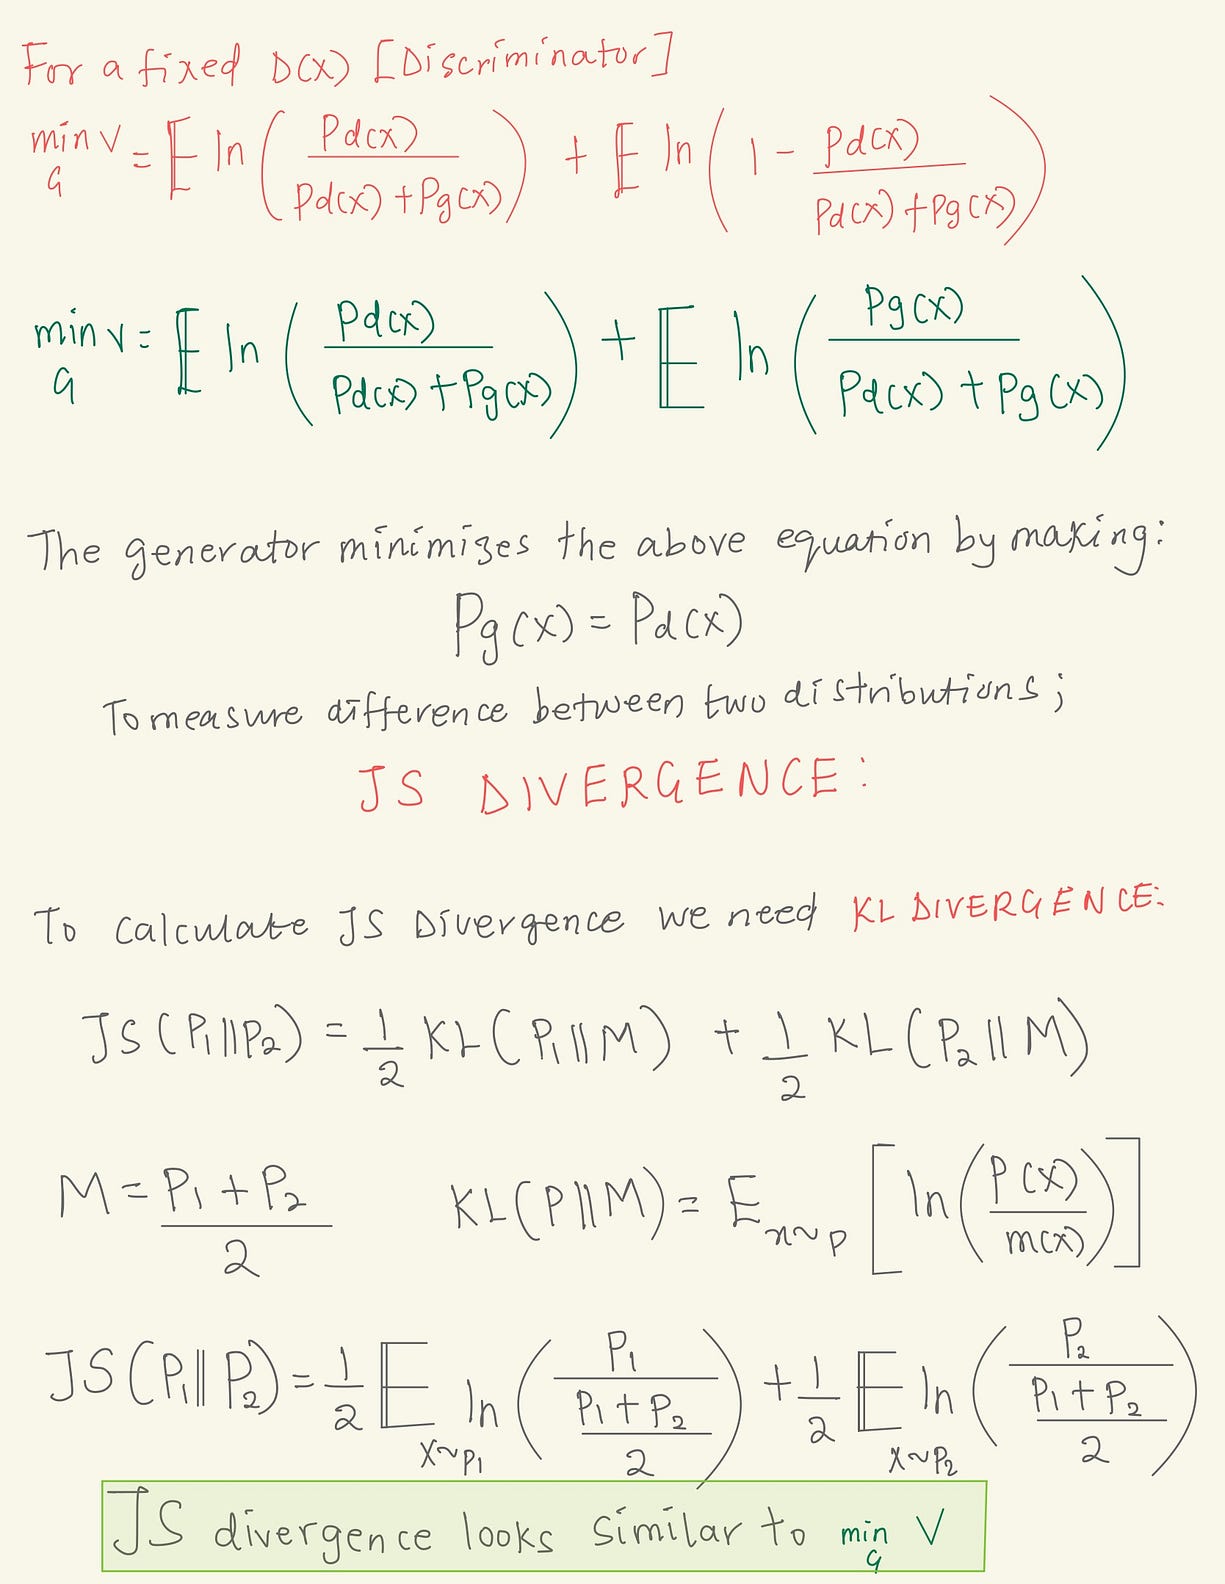 For a fixed D(x) [Discriminator]
min V = 𝔼 ln ( Pd(x) / Pd(x) + Pg(x) ) + 𝔼 ln ( 1 - Pd(x) / Pd(x) + Pg(x) )
G
min V = 𝔼 ln ( Pd(x) / Pd(x) + Pg(x) ) + 𝔼 ln ( Pg(x) / Pd(x) + Pg(x) )
G
The generator minimizes the above equation by making:
Pg(x) = Pd(x)
To measure difference between two distributions;
JS DIVERGENCE:
To calculate JS Divergence we need KL DIVERGENCE:
JS(P₁||P₂) = 1/2 KL(P₁||M) + 1/2 KL(P₂||M)
M = P₁ + P₂ / 2 KL(P||M) = E x~p [ ln ( P(x) / m(x) ) ]
JS(P₁||P₂) = 1/2 𝔼 x~p₁ ln ( P₁ / ( P₁ + P₂ / 2 ) ) + 1/2 𝔼 x~p₂ ln ( P₂ / ( P₁ + P₂ / 2 ) )
JS divergence looks similar to min V
G